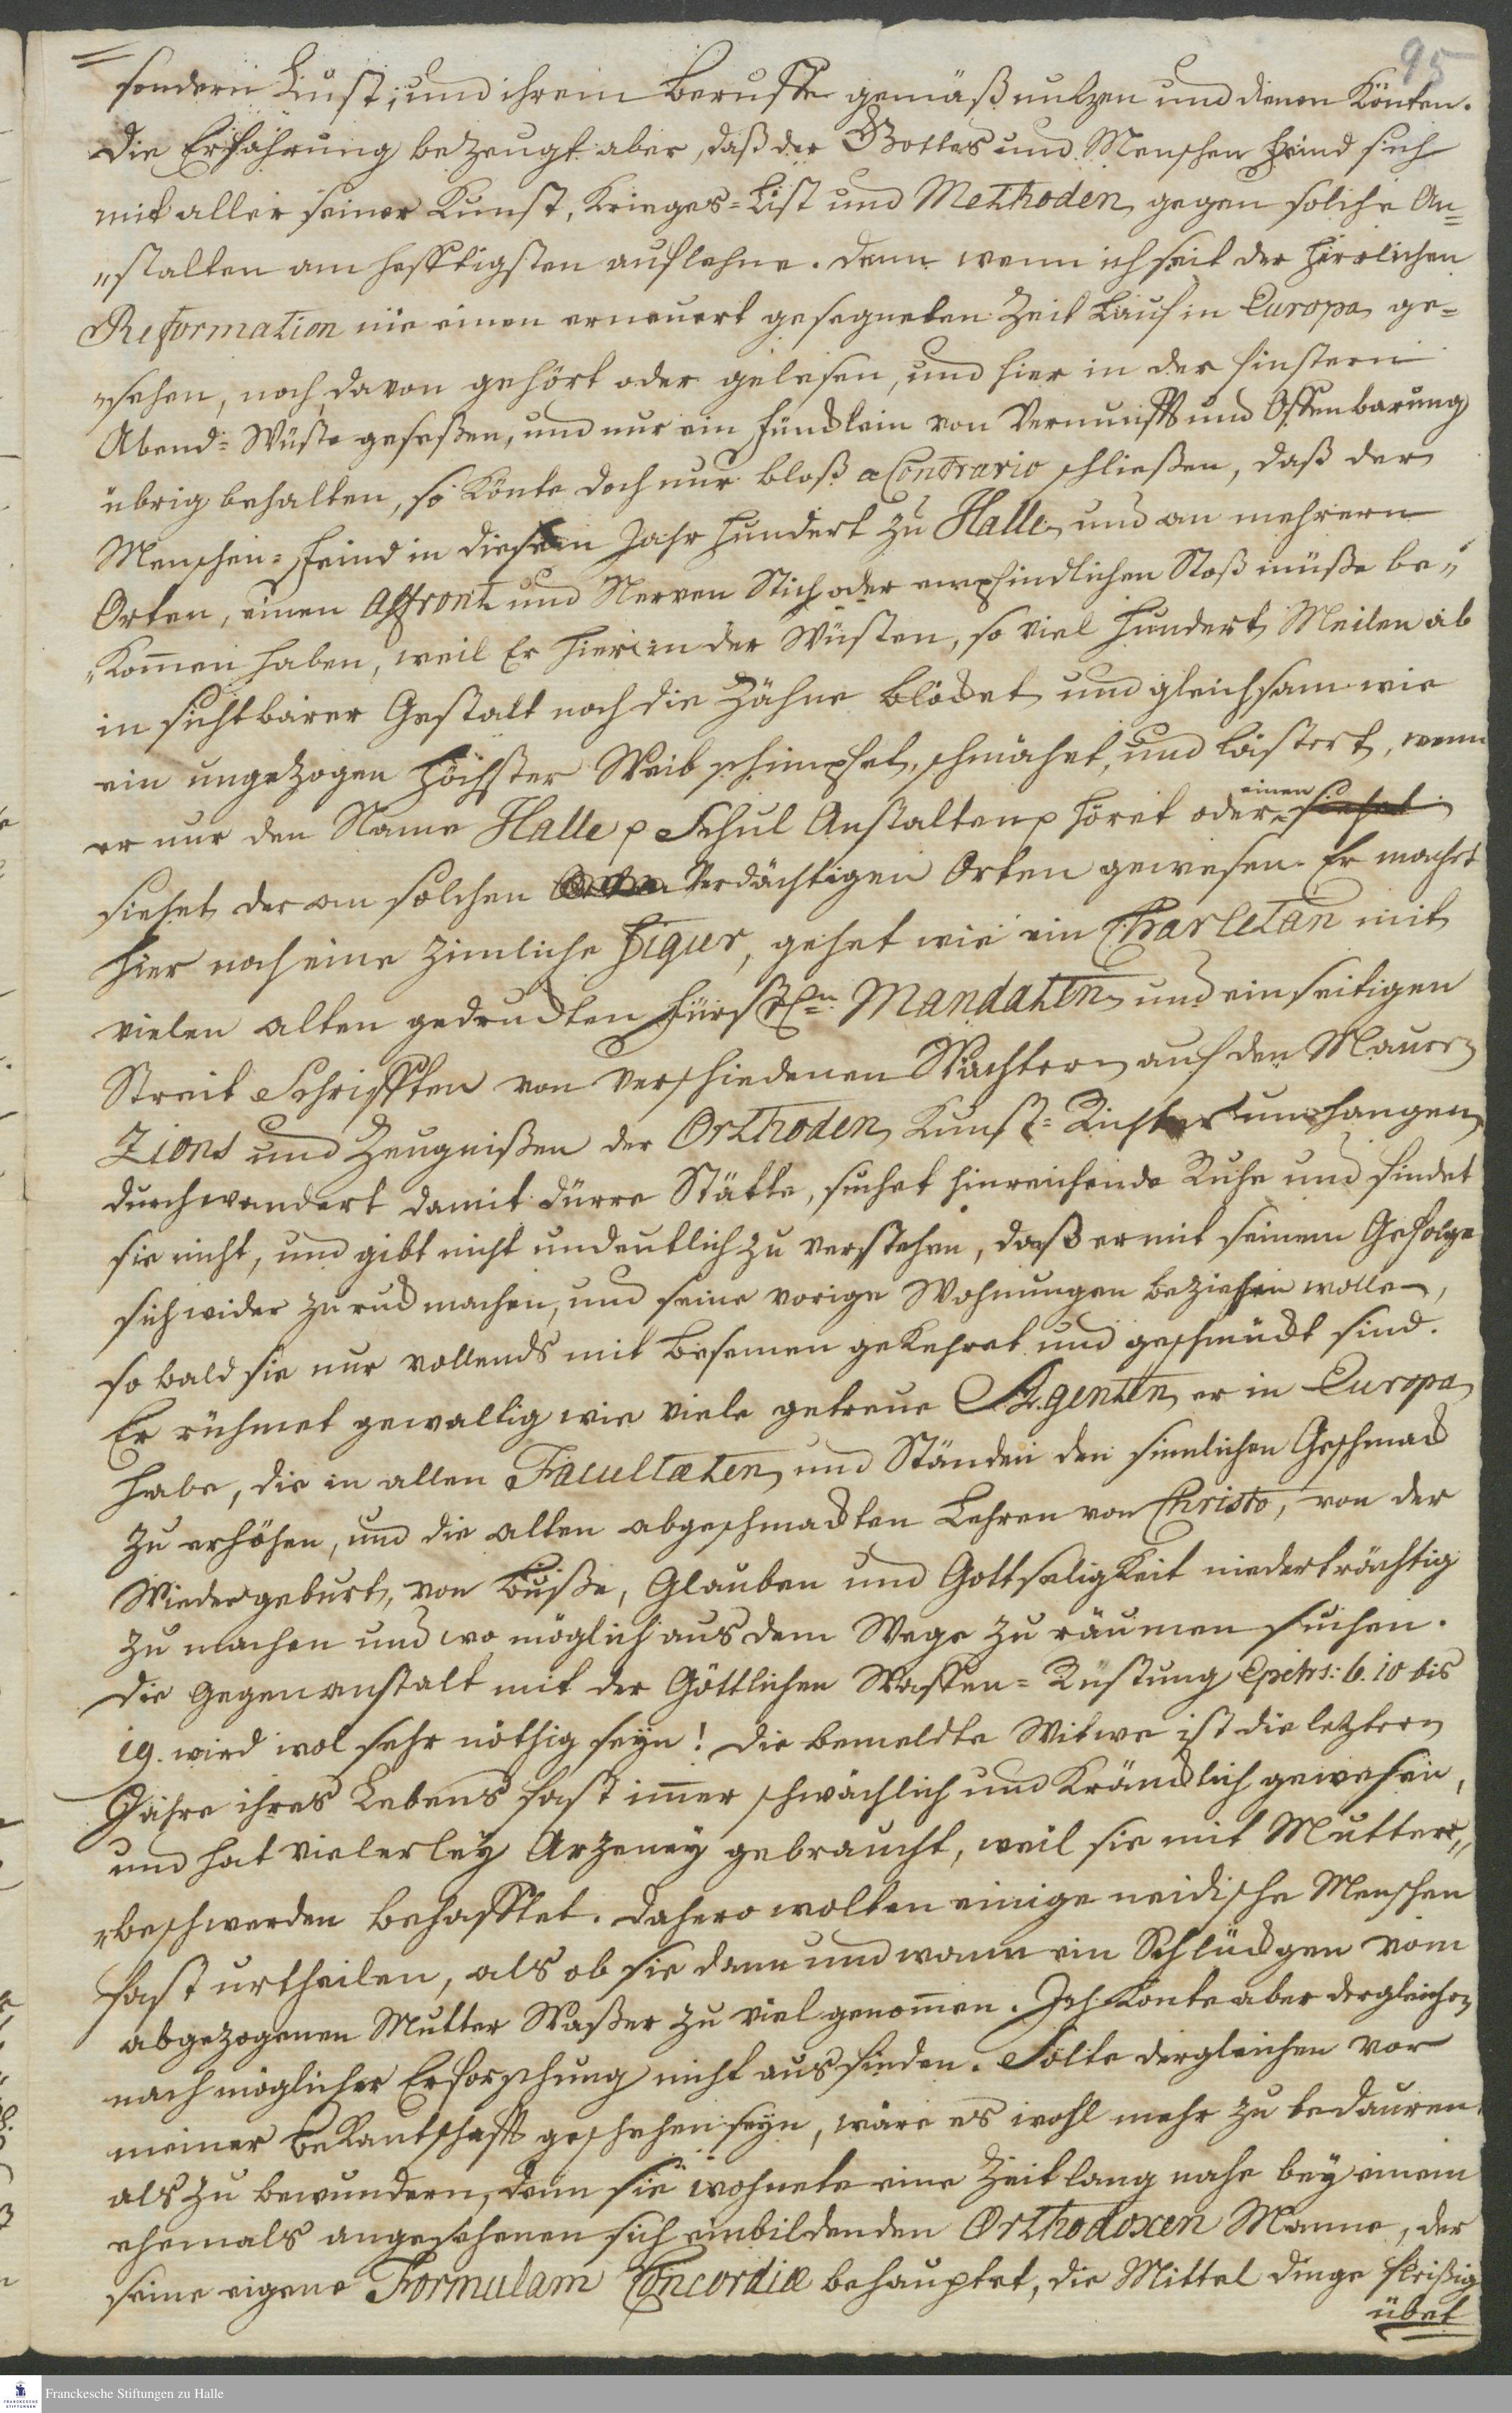 95
sondern Lust, und ihrem Beruffe gemäß nutzen und dienen könten.
Die Erfahrung bezeugt aber, daß der Gottes und Menschen Feind sich
mit aller seiner Kunst, Krieges-List und Methoden gegen solche An=
"stalten am hefftigsten auflehne. Denn wenn ich seit der herrlichen
Reformation nie einen erneuert gesegneten Zeit Lauf in Europa ge=
"sehen, noch davon gehört oder gelesen, und hier in der finstern
Abend-Wüste geseßen, und nur ein Fündlein von Vernunfft und Offenbarung
übrig behalten, so könte doch nur bloß a Contrario schließen, daß der
Menschen-Feind in diesem Jahr hundert zu Halle und an mehrern
Orten, einen Affront und Nerven Stich oder empfindlichen Stoß müße be"
"kom̄en haben, weil Er hier in der Wüsten, so viel hundert Meilen ab
in sichtbarer Gestalt noch die Zähne blöcket und gleichsam wie
ein ungezogen höchster Weib schimpfet, schmähet, und lästert, wenn
er nur den Name Halle p Schul Anstalten p höret oder einen siehet
siehet der an solchen verdächtigen Orten gewesen. Er machet
hier noch eine zimliche Figur, gehet wie ein Charletan mit
vielen alten gedruckten Fürstl. Mandaten und einseitigen
Streit Schrifften von verschiedenen Wächtern auf den Mauern
Zions und Zeugnißen der Orthoden Kunst-Richter umhangen
durchwandert damit dürre Stätte, suchet hinreichende Ruhe und findet
sie nicht, und gibt nicht undeutlich zu verstehen, daß er mit seinem Gefolge
sich wider zuruck machen, und seine vorige Wohnungen beziehen wolle,
so bald sie nur vollends mit Besemen gekehret und geschmückt sind.
Er rühmet gewaltig wie viele getreue Agenten er in Europa
habe, die in allen Facultæten und Ständen den sinnlichen Geschmack
zu erhöhen, und die alten abgeschmackten Lehren von Christo, von der
Wiedergeburt, von Buße, Glauben und Gottseligkeit niederträchtig
zu machen und wo möglich aus dem Wege zu räumen suchen.
Die Gegenanstalt mit der Göttlichen Waffen-Rüstung Ephes: 6. 10 bis
19. wird wol sehr nöthig seyn! Die bemeldte Witwe ist die letztern
Jahre ihres Lebens fast im̄er schwächlich und kräncklich gewesen,
und hat vielerley Arzeney gebraucht, weil sie mit Mutter"
"beschwerden behafftet. Dahero wolten einige neidische Menschen
fast urtheilen, als ob sie dann und wann ein Schlückgen vom
abgezogenen Mutter Waßer zu viel genom̄en. Ich konte aber dergleichen
nach möglicher Erforschung nicht ausfinden. Solte dergleichen vor
meiner bekantschafft geschehen seyn, wäre es wohl mehr zu bedauren
als zu bewundern, denn sie wohnete eine Zeitlang nahe bey einem
ehemals angesehenen sich einbildenden Orthodoxen Manne, der
seine eigene Formulam Concordiæ behauptet, die Mittel dinge fleißig
übet
Franckesche Stiftungen zu Halle